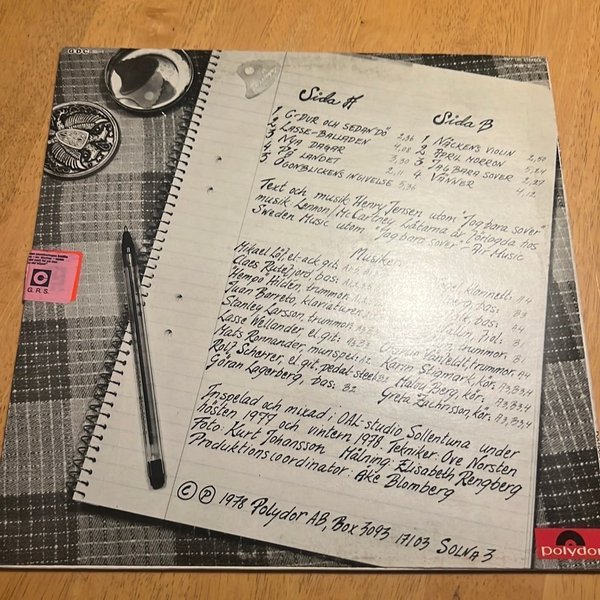 G.D.C.
Sida A
1 C-DUR OCH SEDAN DÖ 2,36
2 LASSE-BALLADEN 4,08
3 NYA DAGAR 3,30
4 PÅ LANDET 2,11
5 ÖGONBLICKENS INGIVELSE 5,36
Sida B
1 NÄCKENS VIOLIN 2,50
2 APRIL MORRON 5,24
3 JAG BARA SOVER 2,37
4 VÄNNER 4,12
Text och musik Henry Jensen utom "Jag bara sover"
musik Lennon/McCartney. Låtarna är förlagda hos
Sweden Music utom "Jag bara sover" Air Music
Musiker:
Mikael
Claes bas:
Hempo Hildén, trummor
Juan Barreto, klaviaturer
Stanley Larsson, trummor
Lasse Wellander, el.git:
Mats Ronnander, munspel: A2
Rolf Scherrer, el.git, pedal-steel:
Göran Lagerberg, bas: B2
klarinett: A4
bas: B3
bas: A4
fiol: B1
trummor: B1
trummor: A4
Karin Stigmark, kör: A3,B3,4
Malou Berg, kör: A3,B3,4
Greta kör: A3,B3,4
Inspelad och mixad i OAL-studio Sollentuna under
hösten 1977 och vintern 1978. Tekniker: Ove Norsten
Foto: Kurt Johansson Målning: Elisabeth Rengberg
Produktionscoordinator: Åke Blomberg
© ℗ 1978 Polydor AB, Box 3093 17103 SOLNA 3
G.R.S.
polydor